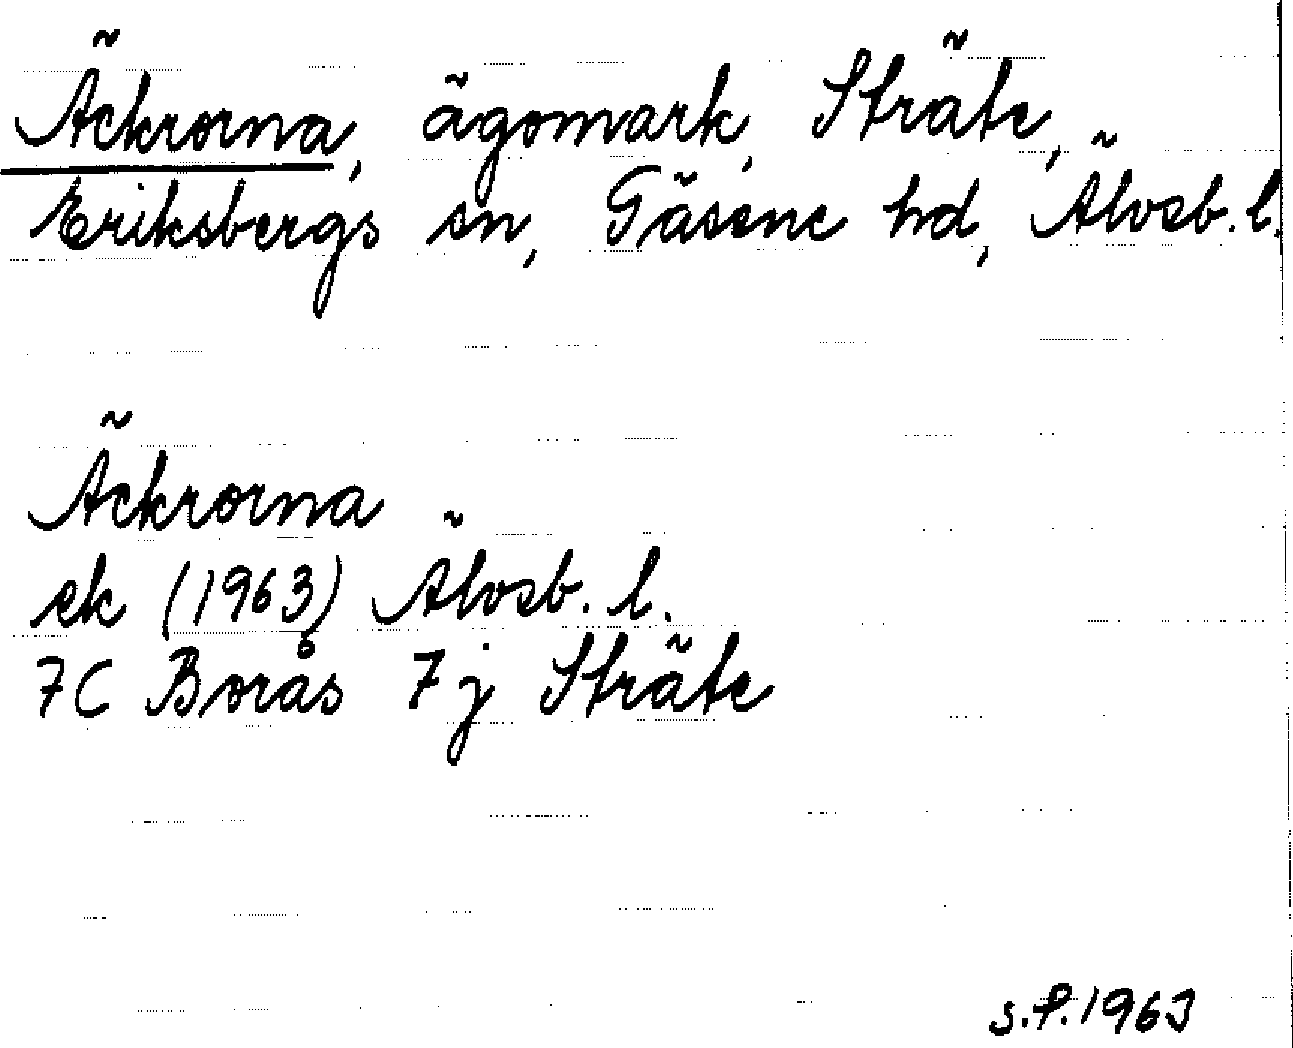 Äckrorna, ägomark, Sträte,
Eriksbergs sn, Gäsene hd, Älvsb. l.
Äckrorna
ek (1963) Älvsb. l.
7C Borås 7j Sträte
s.P. 1963